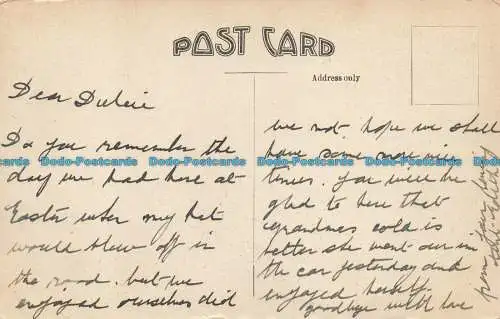 POST CARD
Address only
Dear
Do you remember the
day we had here at
Easter when my hat
would blow off in
the road. but we
enjoyed ourselves did
we not. hope we shall
have some more nice
times. you will be
glad to here that
grandmas cold is
better she went our in
the car yesterday and
enjoyed herself.
goodbye with love
from your loving
Dodo-Postcards Dodo-Postcards Dodo-Postcards Dodo-Postcards
Dodo-Postcards Dodo-Postcards Dodo-Postcards Dodo-Postcards